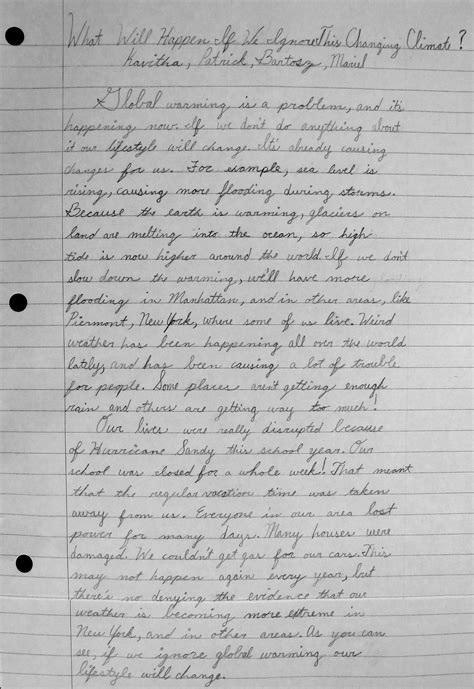 What Will Happen If We Ignore This Changing Climate?
Kavitha, Patrick, Bartosz, Mariel
Global warming is a problem, and it's
happening now. If we don't do anything about
it our lifestyle will change. It's already causing
changes for us. For example, sea level is
rising, causing more flooding during storms.
Because the earth is warming, glaciers on
land are melting into the ocean, so high
tide is now higher around the world. If we don't
slow down the warming, we'll have more
flooding in Manhattan, and in other areas, like
Piermont, New York, where some of us live. Weird
weather has been happening all over the world
lately, and has been causing a lot of trouble
for people. Some places aren't getting enough
rain and others are getting way too much!
Our lives were really disrupted because
of Hurricane Sandy this school year. Our
school was closed for a whole week! That meant
that the regular vacation time was taken
away from us. Everyone in our area lost
power for many days. Many houses were
damaged. We couldn't get gas for our cars. This
may not happen again every year, but
there's no denying the evidence that our
weather is becoming more extreme in
New York, and in other areas. As you can
see, if we ignore global warming our
lifestyle will change.